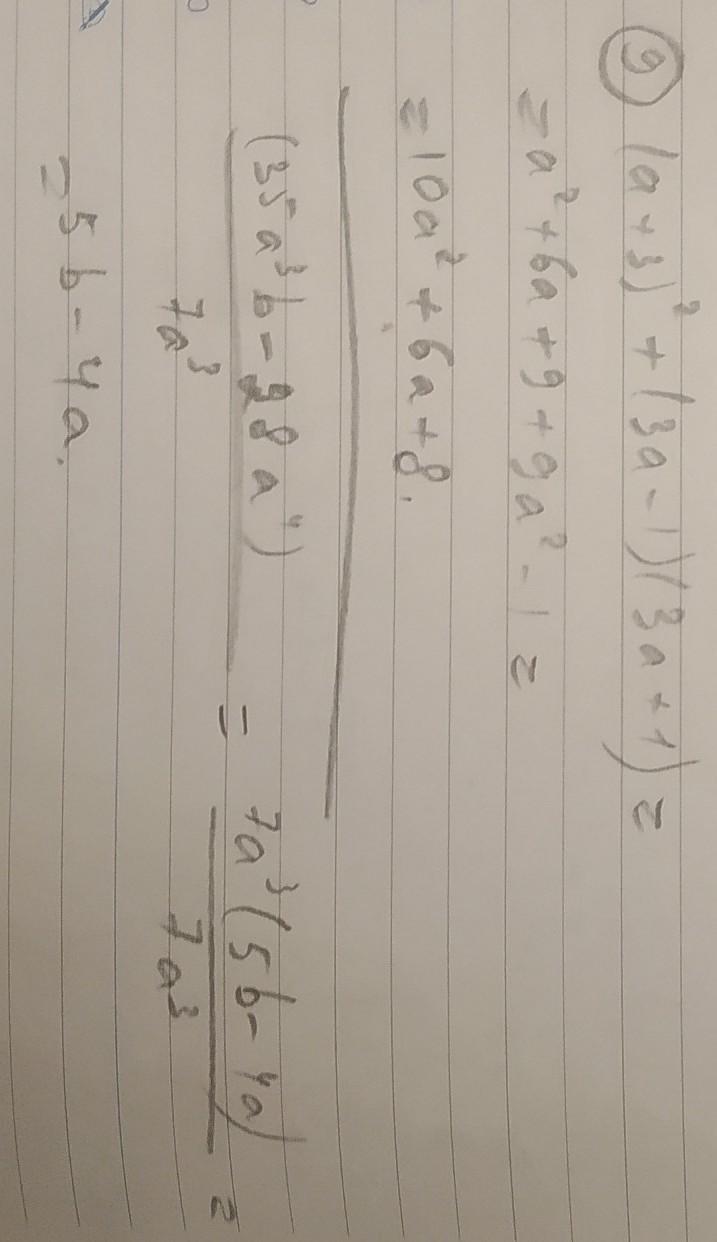 ⑨ (a+3)² + (3a-1)(3a+1) =
= a² + 6a + 9 + 9a² - 1 =
= 10a² + 6a + 8.
(35a³b - 28a⁴) / 7a³ = 7a³(5b - 4a) / 7a³ =
= 5b - 4a.